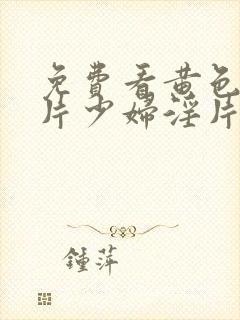 免費看黄色
片少婦淫片
鍾萍